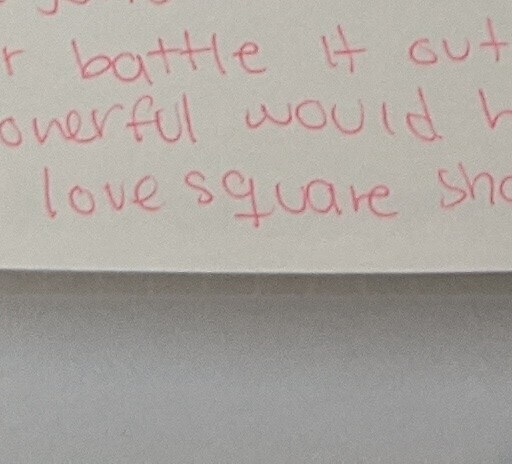 r battle it out
onerful would h
love square sho